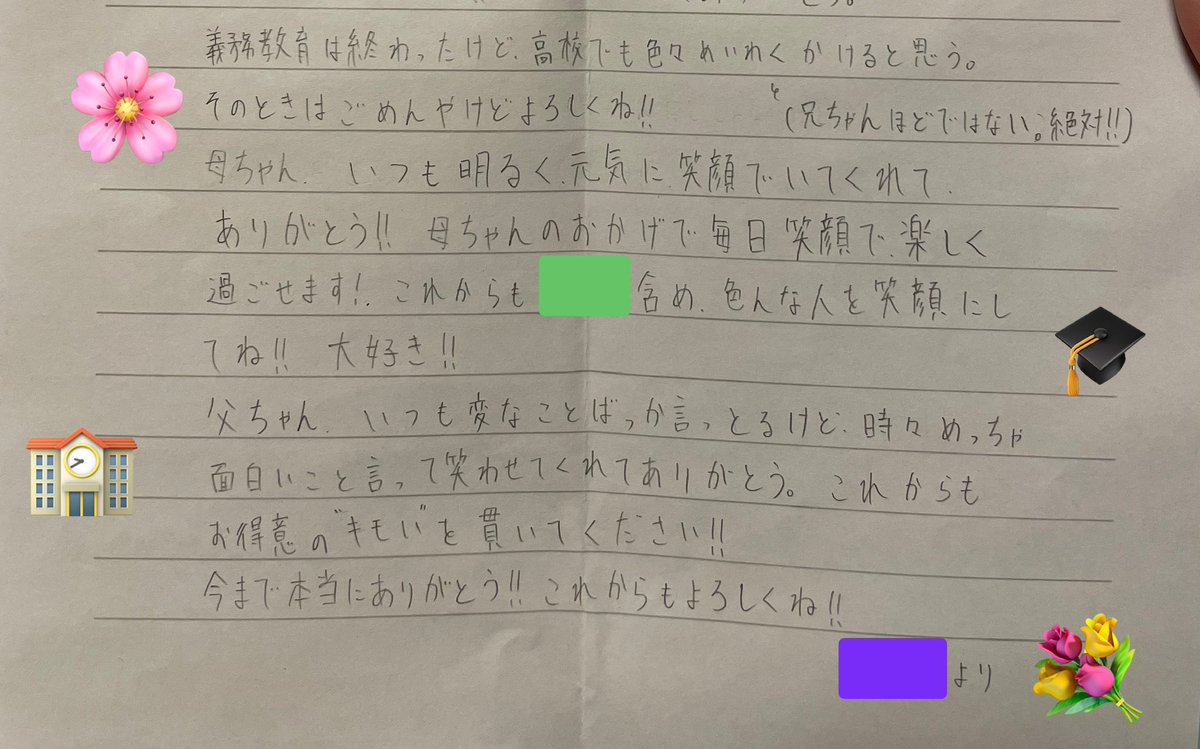 義務教育は終わったけど、高校でも色々めいわくかけると思う。
そのときはごめんやけどよろしくね!! と(兄ちゃんほどではない。絶対!!)
母ちゃん、いつも明るく、元気に、笑顔でいてくれて、
ありがとう!! 母ちゃんのおかげで毎日笑顔で、楽しく
過ごせます!、これからも 含め、色んな人を笑顔にし
てね!! 大好き!!
父ちゃん、いつも変なことばっか言っとるけど、時々めっちゃ
面白いこと言って笑わせてくれてありがとう。これからも
お得意の"キモい"を貫いてください!!
今まで本当にありがとう!! これからもよろしくね!!
より